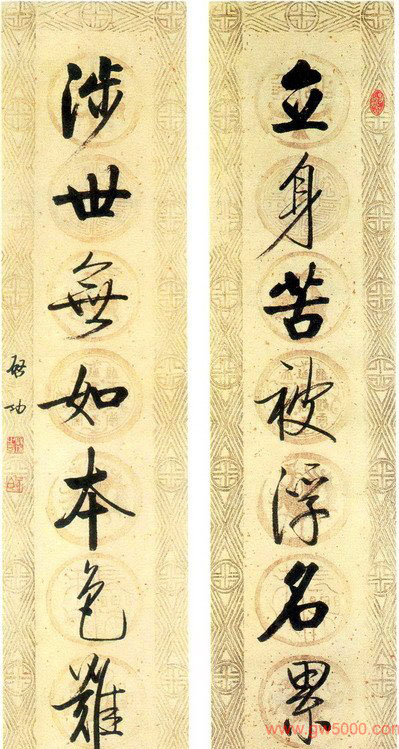 立身苦被浮名累
涉世無如本色難
啟功
www.gw5000.com